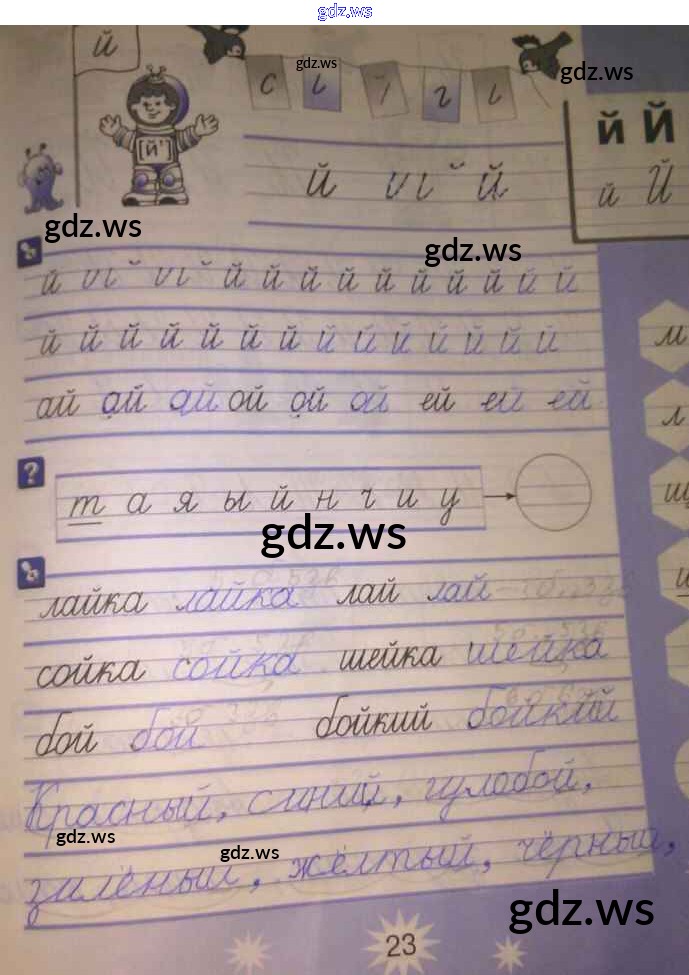 gdz.ws
й
gdz.ws
gdz.ws
с
й Й
[й']
й й
й Й
gdz.ws
gdz.ws
й й й й й й й й й й й й
й й й й й й й й й й й й й
ай ай ай ой ой ой ей ей ей
м
л
?
т а я ы й н ч и у
щ
gdz.ws
лайка лайка лай лай
сойка сойка шейка шейка
бой бой бойкий бойкий
Красный, синий, гулобой,
gdz.ws
gdz.ws
зилёный, жёлтый, чёрный,
gdz.ws
23